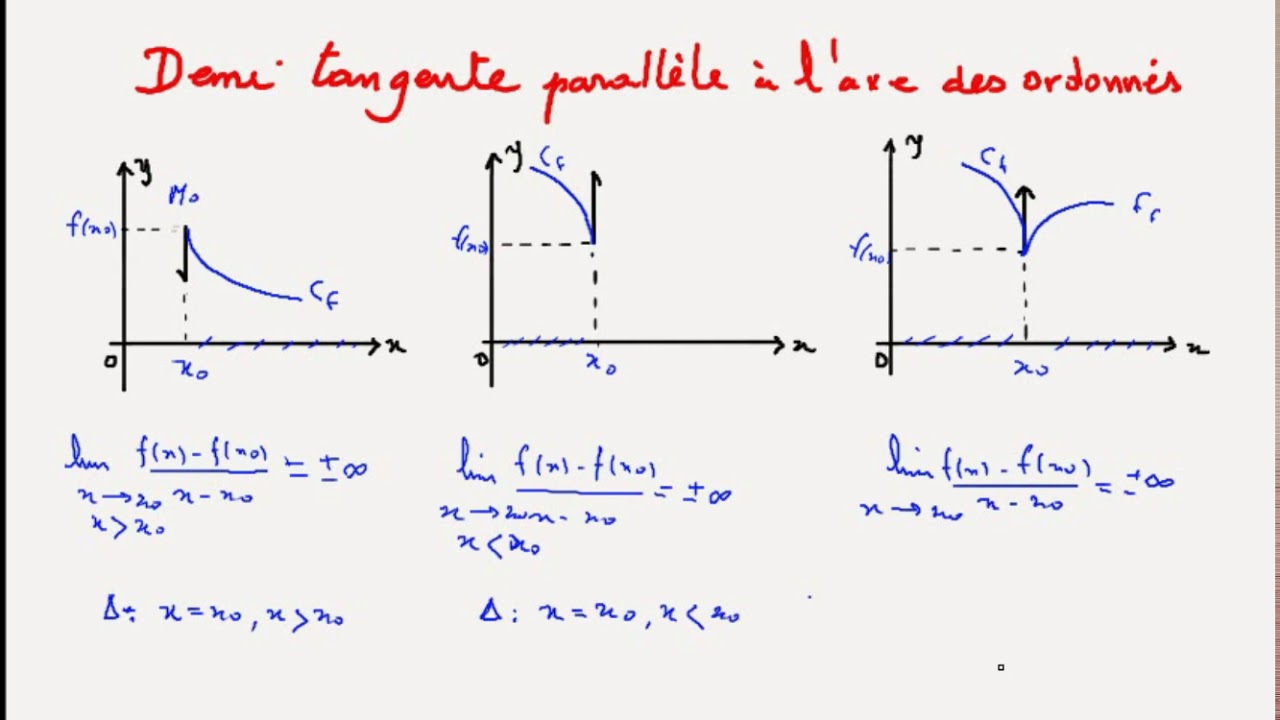 Demi tangente parallèle à l'axe des ordonnés
y
M₀
f(x₀)
C_f
0
x₀
x
y
C_f
f(x₀)
0
x₀
x
y
C_f
Γ_f
f(x₀)
0
x₀
x
lim f(x) - f(x₀) / x - x₀ = ±∞
x → x₀
x > x₀
lim f(x) - f(x₀) / x - x₀ = ±∞
x → x₀
x < x₀
lim f(x) - f(x₀) / x - x₀ = ±∞
x → x₀
Δ: x = x₀, x > x₀
Δ: x = x₀, x < x₀